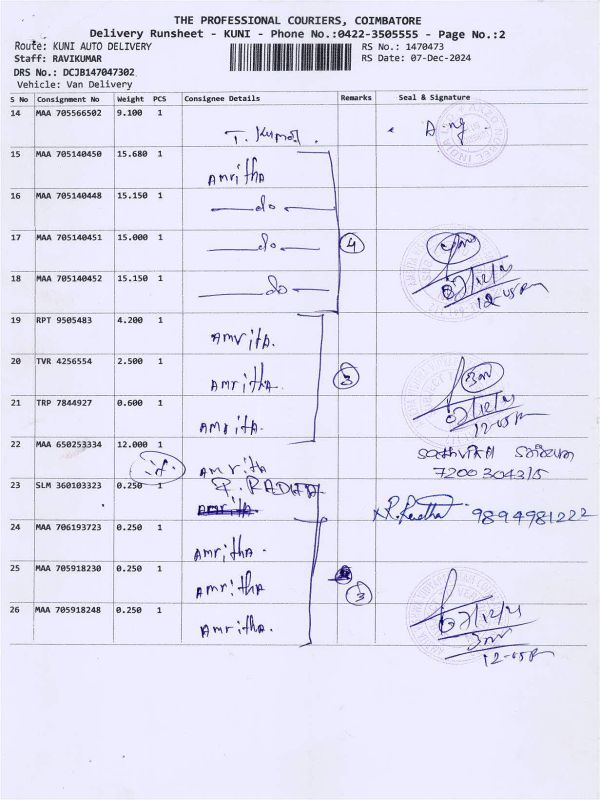 THE PROFESSIONAL COURIERS, COIMBATORE
Delivery Runsheet - KUNI - Phone No.:0422-3505555 - Page No.:2
Route: KUNI AUTO DELIVERY RS No.: 1470473
Staff: RAVIKUMAR RS Date: 07-Dec-2024
DRS No.: DCJB147047302
Vehicle: Van Delivery
S No Consignment No Weight PCS Consignee Details Remarks Seal & Signature
14 MAA 705566502 9.100 1 T. Kumar.
15 MAA 705140450 15.680 1 Amritha
16 MAA 705140448 15.150 1 do
17 MAA 705140451 15.000 1 do 4
18 MAA 705140452 15.150 1 do
12-05pm
19 RPT 9505483 4.200 1 Amritha.
20 TVR 4256554 2.500 1 Amritha. 3
21 TRP 7844927 0.600 1 Amritha.
12-05pm
22 MAA 650253334 12.000 1 Amritha
7200304315
23 SLM 360103323 0.250 1 P. RADHA
R. Radha 9894981222
24 MAA 706193723 0.250 1 Amritha.
25 MAA 705918230 0.250 1 Amritha 3
26 MAA 705918248 0.250 1 Amritha.
12-05pm